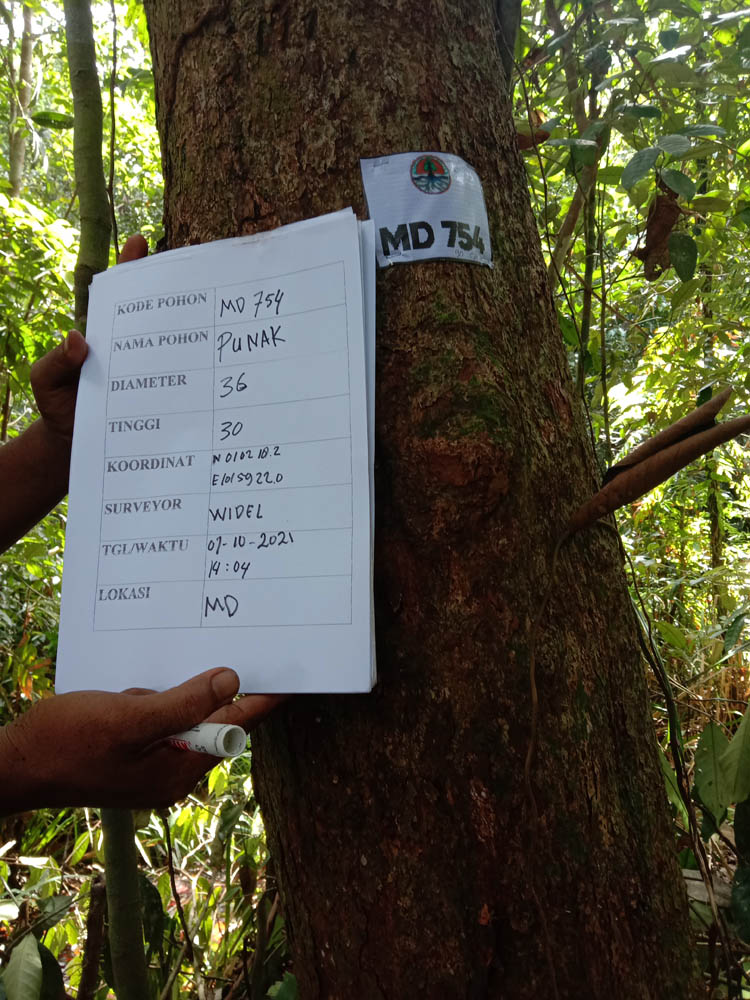 MD 754
KODE POHON MD 754
NAMA POHON PUNAK
DIAMETER 36
TINGGI 30
KOORDINAT N 0102 10.2
E 1015922.0
SURVEYOR WIDEL
TGL/WAKTU 07-10-2021
14:04
LOKASI MD